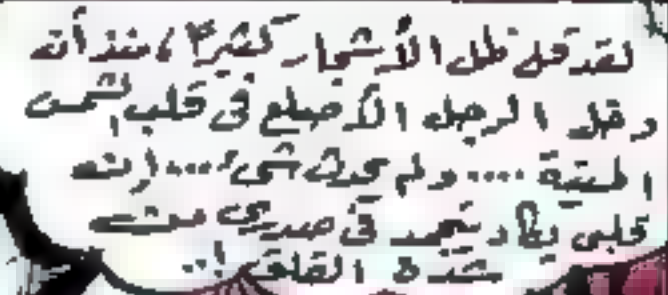 لقد قل ظل الأشجار كثيرًا، منذ أن
دخل الرجل الأصلع فى قلب الشمس
الميتة .... ولم يحدث شىء.... إن
قلبى يكاد يتجمد فى صدرى من
شدة القلق !..